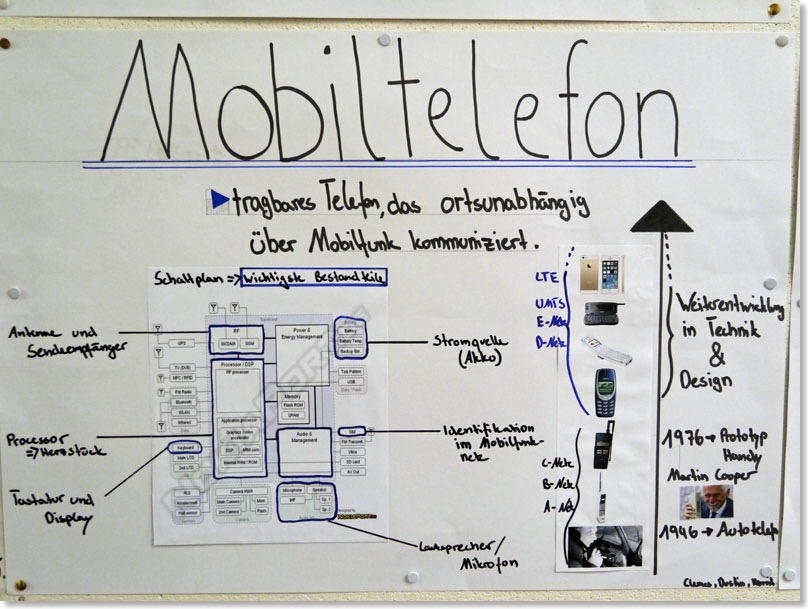 Mobiltelefon
tragbares Telefon, das ortsunabhängig
über Mobilfunk kommuniziert.
Schaltplan => wichtigste Bestandteile
Antenne und
Sendeempfänger
Processor
=> Herzstück
Tastatur und
Display
Stromquelle
(Akko)
Identifikation
im Mobilfunk-
netz
Lautsprecher/
Mikrofon
RF
WCDMA GSM
Power &
Energy Management
Battery
Battery Temp
Backup Bat.
GPS
Processor / DSP
RF processor
Test Pattern
USB
TV (DVB)
NFC / RFID
FM Radio
Bluetooth
WLAN
Infrared
Memory
Flash ROM
SRAM
Application processor
DSP ARM core
Internal RAM / ROM
Audio &
Management
SIM
FM Transmit.
Vibra
SD card
AV Out
Keyboard
Main LCD
2nd LCD
ALS
Camera HWA
Main Camera
2nd Camera
Flash
Microphone
IHF
Speaker
Sp. 1
Sp. 2
LTE
UMTS
E-Netz
D-Netz
C-Netz
B-Netz
A-Netz
Weiterentwicklung
in Technik
&
Design
1976 → Prototyp
Handy
Martin Cooper
1946 → Autotelefon